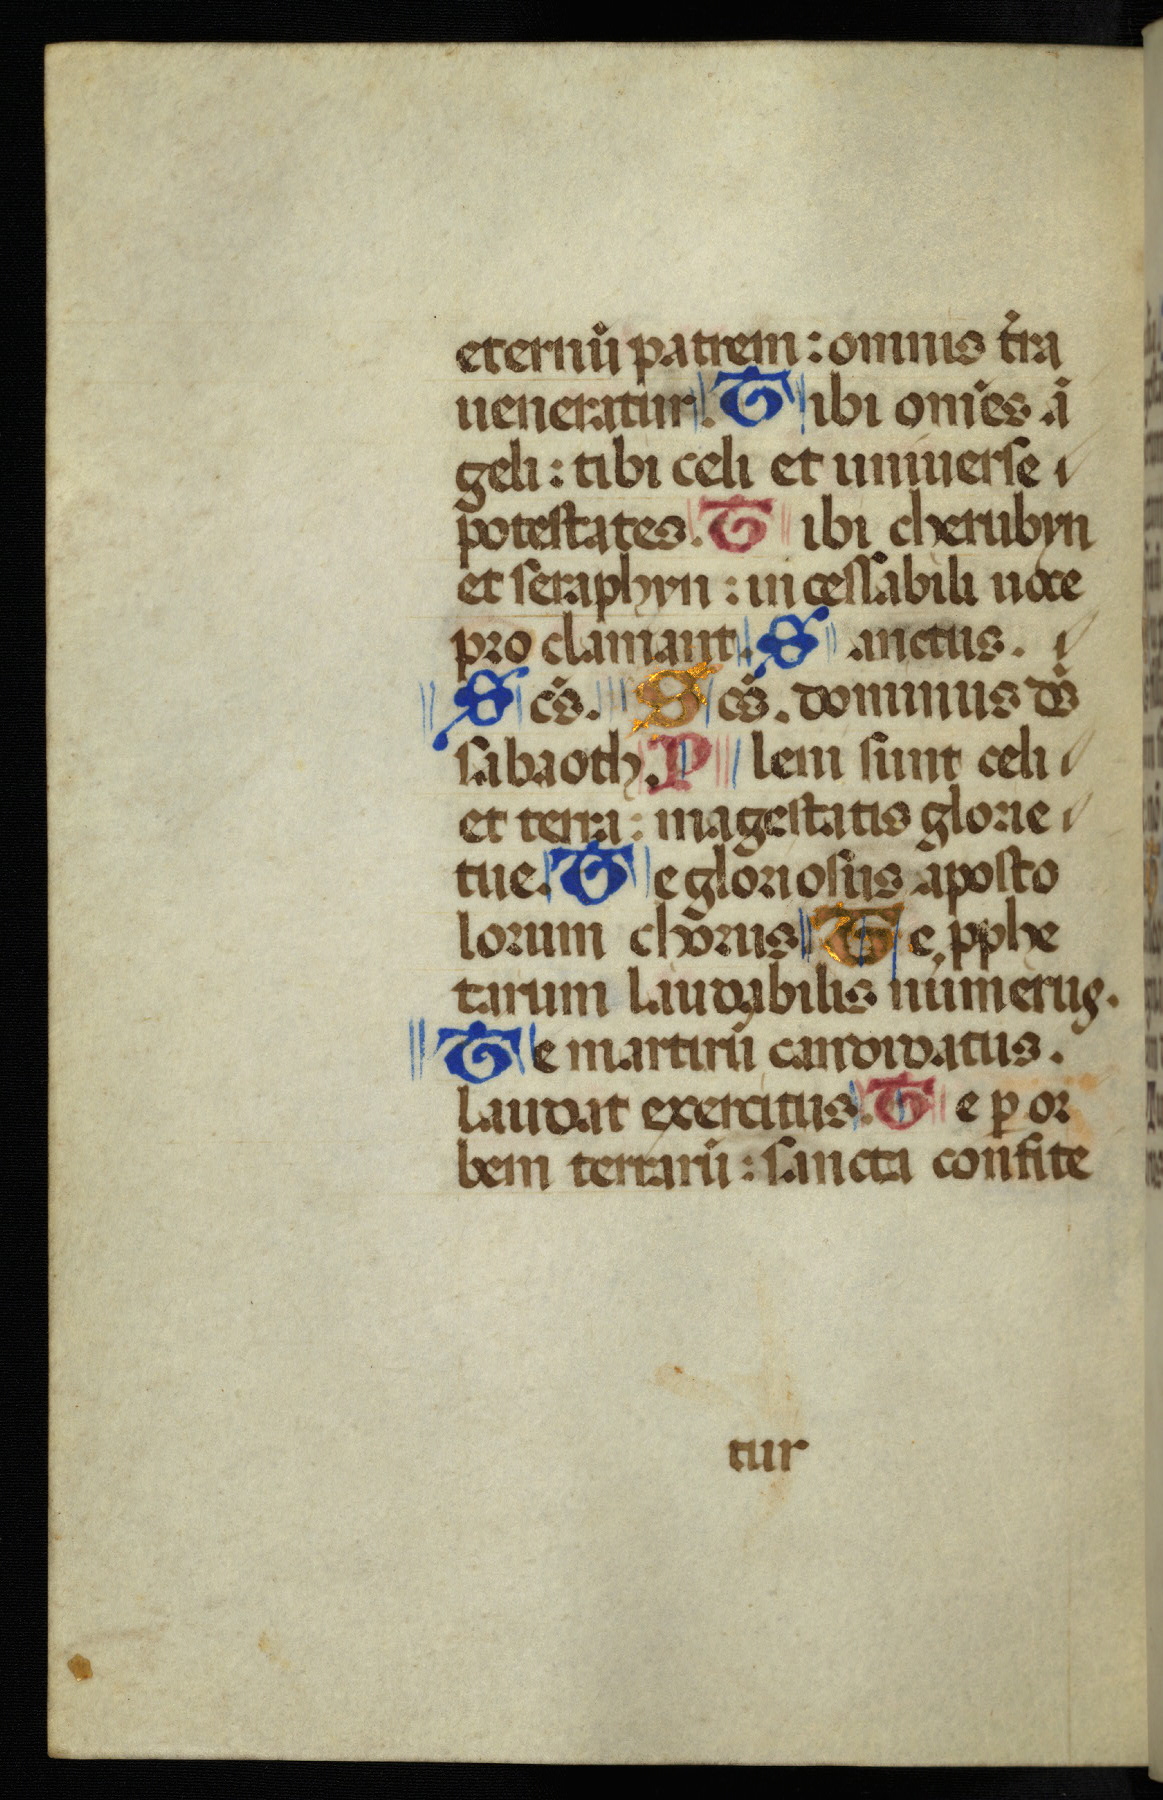 eternū patrem : omnis t̄ra
ueneratur. Tibi om̄es ā
geli : tibi celi et uniuerse
potestates. Tibi cherubyn
et seraphyn : incessabili uoce
proclamant. Sanctus.
Sc̄s. Sc̄s. dominus ds̄
sabaoth. Pleni sunt celi
et terra : magestatis glorie
tue. Te gloriosus aposto
lorum chorus. Te ꝓphe
tarum laudabilis numerus.
Te martirū candidatus.
laudat exercitus. Te ꝑ or
bem terrarū : sancta confite
tur